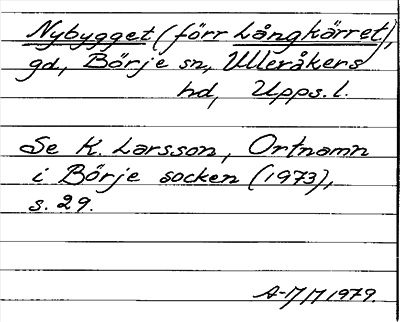 Nybygget (förr Långkärret),
gd, Börje sn, Ulleråkers
hd, Upps. l.
Se K. Larsson, Ortnamn
i Börje socken (1973),
s. 29.
1979.